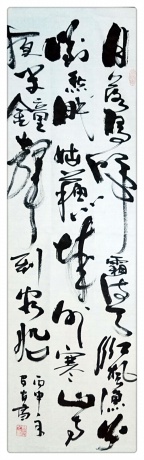 月落烏啼霜滿天江楓漁火
對愁眠姑蘇城外寒山寺
夜半鐘聲到客船
丙申